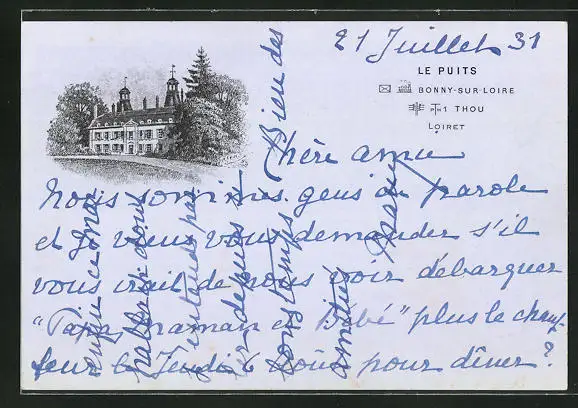 21 Juillet 31
LE PUITS
BONNY-SUR-LOIRE
1 THOU
LOIRET
Chère amie
Nous sommes gens de parole
et je viens vous demander s'il
vous irait de nous voir débarquer
"Papa, maman et Bébé" plus le chauf-
feur le Jeudi 6 Août pour dîner?
depuis
longtemps
Bien des
amitiés